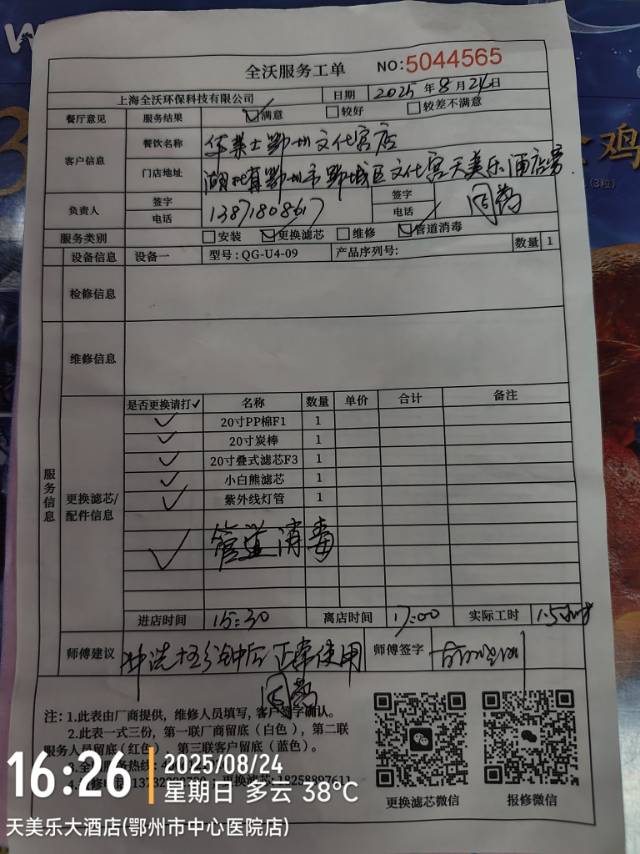 全沃服务工单 NO:5044565
上海全沃环保科技有限公司 日期 2025年8月24日
餐厅意见 服务结果 ☑满意 □较好 □较差不满意
客户信息 餐饮名称 华莱士鄂州文化宫店
门店地址 湖北省鄂州市鄂城区文化宫天美乐酒店旁
负责人 签字 签字
电话 13871808617 电话
服务类别 □安装 ☑更换滤芯 □维修 ☑管道消毒
设备信息 设备一 型号:QG-U4-09 产品序列号: 数量 1
检修信息
维修信息
服务信息
更换滤芯/配件信息
是否更换请打✓ 名称 数量 单价 合计 备注
✓ 20寸PP棉F1 1
✓ 20寸炭棒 1
✓ 20寸叠式滤芯F3 1
✓ 小白熊滤芯 1
✓ 紫外线灯管 1
✓ 管道消毒
进店时间 15:30 离店时间 17:00 实际工时 1.5
师傅建议 冲洗十五分钟后正常使用 师傅签字
注:1.此表由厂商提供,维修人员填写,客户签字确认。
2.此表一式三份,第一联厂商留底(白色),第二联
服务人员留底(红色),第三联客户留底(蓝色)。
更换滤芯微信 报修微信
16:26 2025/08/24
星期日 多云 38℃
天美乐大酒店(鄂州市中心医院店)